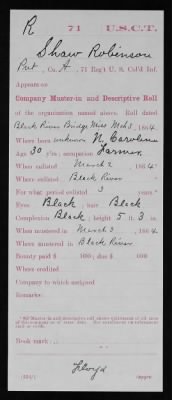 R 71 U.S.C.T.
Shaw Robinson
Pvt, Co. A, 71 Reg't U. S. Col'd Inf.
Appears on
Company Muster-in and Descriptive Roll
of the organization named above. Roll dated
Black River Bridge Miss Mch 3, 1864.
Where born unknown N. Carolina
Age 30 y'rs; occupation Farmer
When enlisted March 2, 1864
Where enlisted Black River
For what period enlisted 3 years.
Eyes Black, hair Black
Complexion Black; height 5 ft. 3 in.
When mustered in March 3, 1864.
Where mustered in Black River
Bounty paid $ 100; due $ 100
Where credited
Company to which assigned
Remarks:
Book mark:
Lloyd
Copyist.